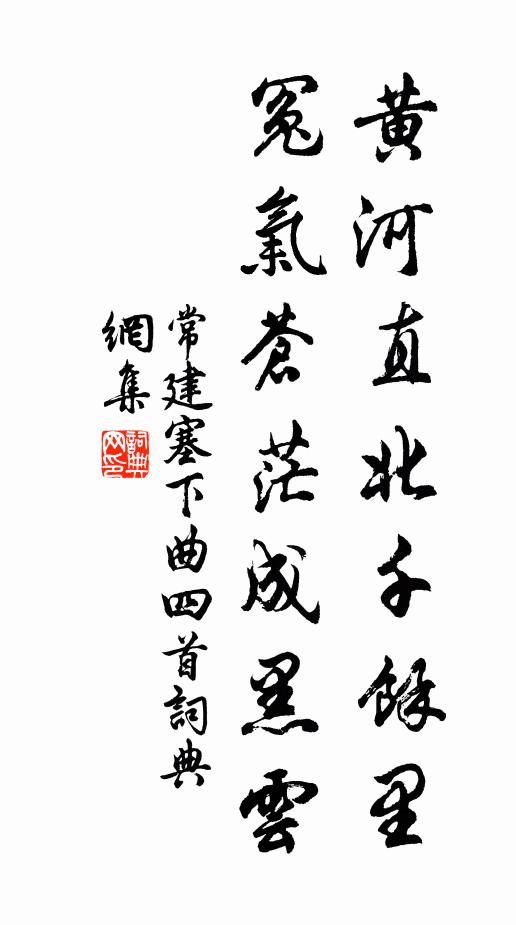 黄河直北千餘里
冤氣蒼茫成黑雲
常建塞下曲四首詞典
網集
詞典網印